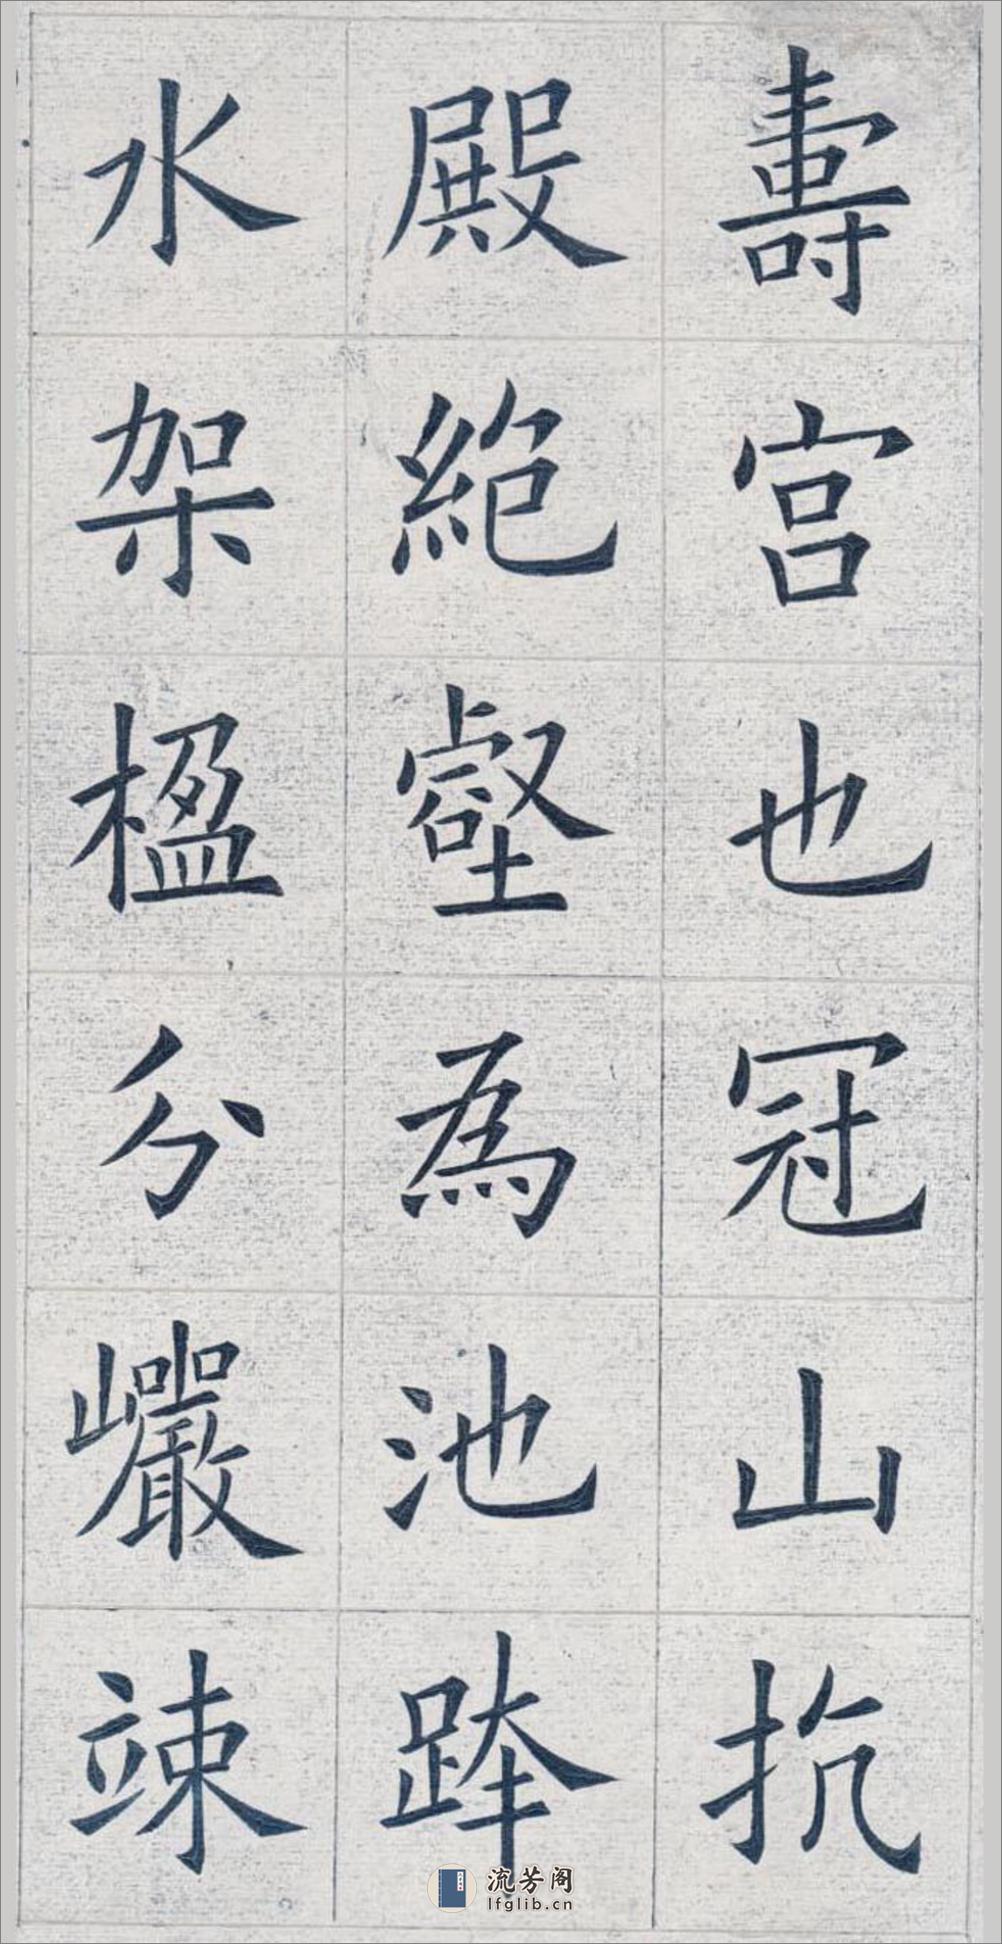 壽宮也冠山抗
殿絶壑為池跨
水架楹分巖竦
流芳阁
lfglib.cn